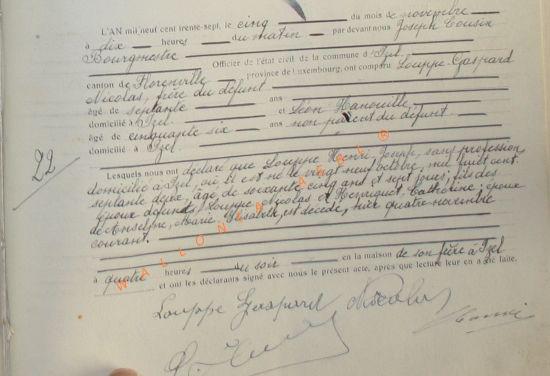 L'AN mil neuf cent trente-sept, le cinq du mois de novembre
à dix heures du matin par devant nous Joseph Cousin
Bourgmestre Officier de l'état civil de la commune d'Izel,
canton de Florenville province de Luxembourg, ont comparu Louppe Gaspard
Nicolas, frère du défunt
âgé de septante ans
domicilié à Izel et Léon Hanouille,
âgé de cinquante six ans non parent du défunt
domicilié à Izel.
22
Lesquels nous ont déclaré que Louppe Henri, Joseph, sans profession
domicilié à Izel, où il est né le vingt neuf octobre, mil huit cent
septante deux, âgé de soixante cinq ans et sept jours, fils des
époux défunts, Louppe Nicolas et Henriquet Catherine; époux
de Anselme, Marie Elisabeth, est décédé, hier quatre novembre
courant.
à quatre heures du soir en la maison de son frère à Izel
et ont les déclarants signé avec nous le présent acte, après que lecture leur en a été faite.
WALLONIA
Louppe Gaspard Nicolas